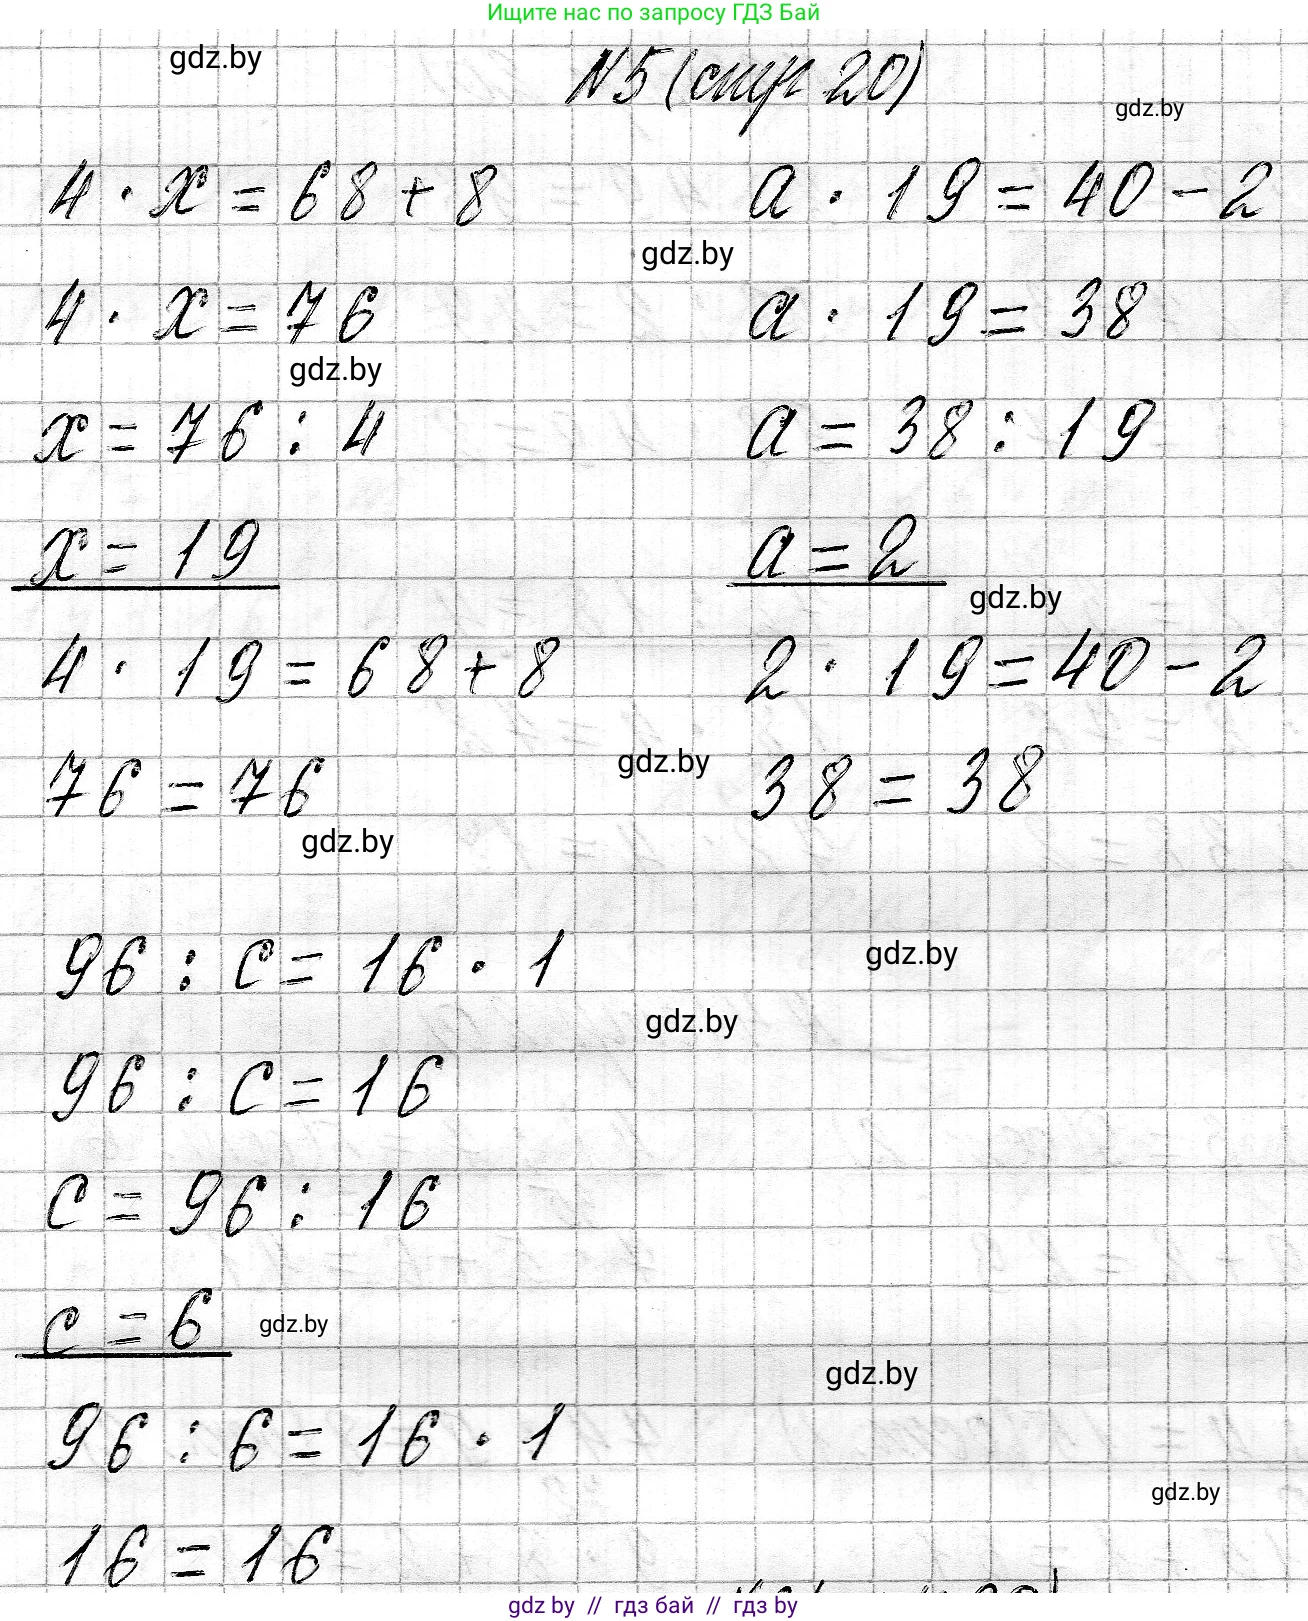 Ищите нас по запросу ГДЗ Бай
gdz.by
N5 (стр 20)
gdz.by
4 · x = 68 + 8
a · 19 = 40 - 2
gdz.by
4 · x = 76
a · 19 = 38
gdz.by
x = 76 : 4
a = 38 : 19
x = 19
a = 2
gdz.by
4 · 19 = 68 + 8
2 · 19 = 40 - 2
76 = 76
gdz.by
38 = 38
gdz.by
96 : c = 16 · 1
gdz.by
gdz.by
96 : c = 16
c = 96 : 16
c = 6
gdz.by
gdz.by
96 : 6 = 16 · 1
gdz.by
16 = 16
gdz by // гдз бай // гдз by